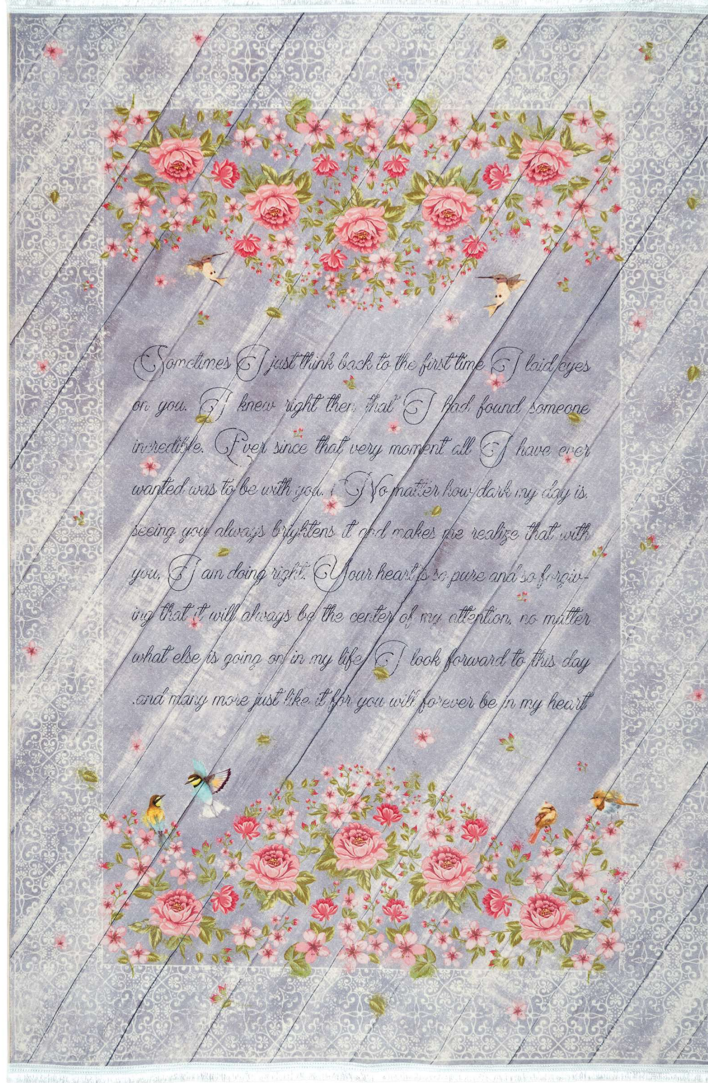 Sometimes I just think back to the first time I laid eyes
on you. I knew right then that I had found someone
incredible. Ever since that very moment all I have ever
wanted was to be with you. No matter how dark my day is,
seeing you always brightens it and makes me realize that with
you, I am doing right. Your heart is so pure and so forgiv-
ing that it will always be the center of my attention, no matter
what else is going on in my life. I look forward to this day
.and many more just like it for you will forever be in my heart